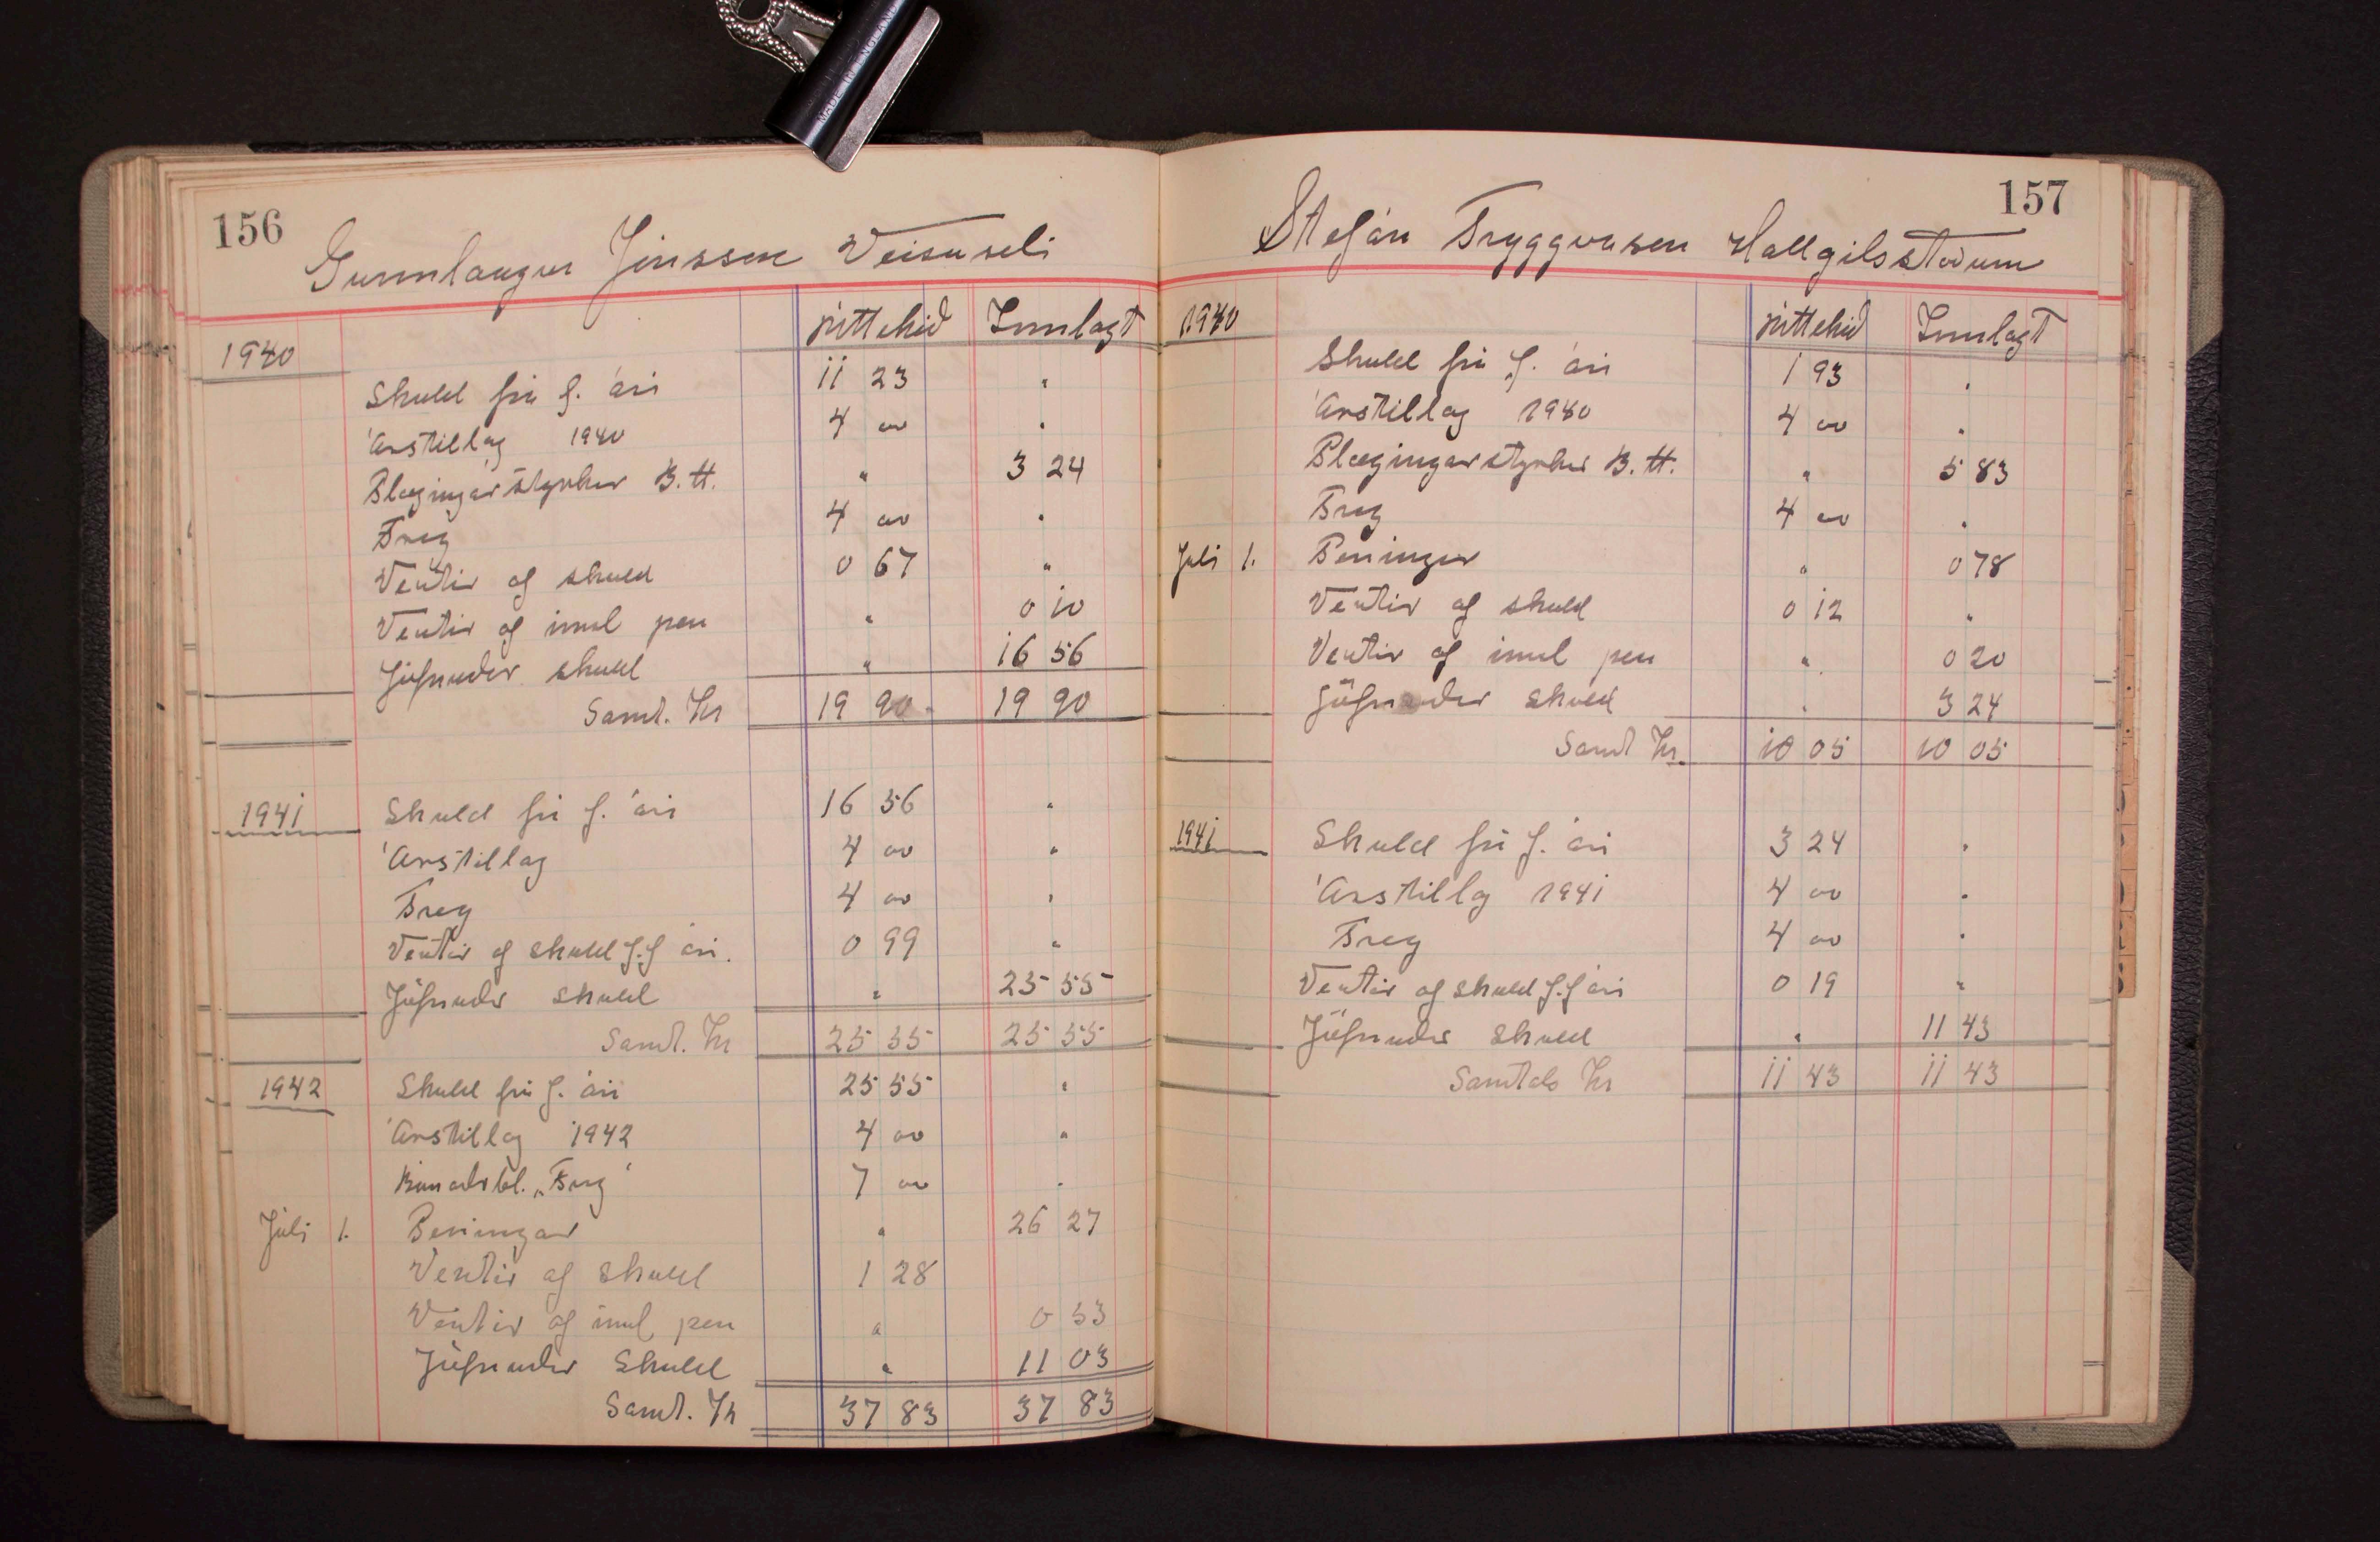 MADE IN ENGLAND
156
Gunnlaugur Jónsson Veisuseli
úttekið Innlagt
1940
Skuld frá f. ári 11 23 "
Árstillag 1940 4 00 "
Plægingarstyrkur B.H. " 3 24
Freyr 4 00 "
Vextir af skuld 0 67 "
Vextir af innl pen " 0 10
Jöfnuður skuld " 16 56
Samt. Kr 19 90 19 90
1941 Skuld frá f. ári 16 56 "
Árstillag 4 00 "
Freyr 4 00 "
Vextir af skuld f.f ári. 0 99 "
Jöfnuður skuld " 25 55
Samt. Kr 25 55 25 55
1942 Skuld frá f. ári 25 55 "
Árstillag 1942 4 00 "
Búnaðarbl. „Freyr" 7 00 "
Júlí 1. Peningar " 26 27
Vextir af skuld 1 28
Vextir af innl pen " 0 53
Jöfnuður Skuld " 11 03
Samt. Kr 37 83 37 83
157
Stefán Tryggvason Hallgilsstöðum
1940 úttekið Innlagt
Skuld frá f. ári 1 93 "
Árstillag 1940 4 00 "
Plægingarstyrkur B.H. " 5 83
Freyr 4 00 "
Júlí 1. Peningar " 0 78
Vextir af skuld 0 12 "
Vextir af innl pen " 0 20
Jöfnuður skuld " 3 24
Samt Kr. 10 05 10 05
1941 Skuld frá f. ári 3 24 "
Árstillag 1941 4 00 "
Freyr 4 00 "
Vextir af skuld f.f ári 0 19 "
Jöfnuður skuld " 11 43
Samtals Kr 11 43 11 43